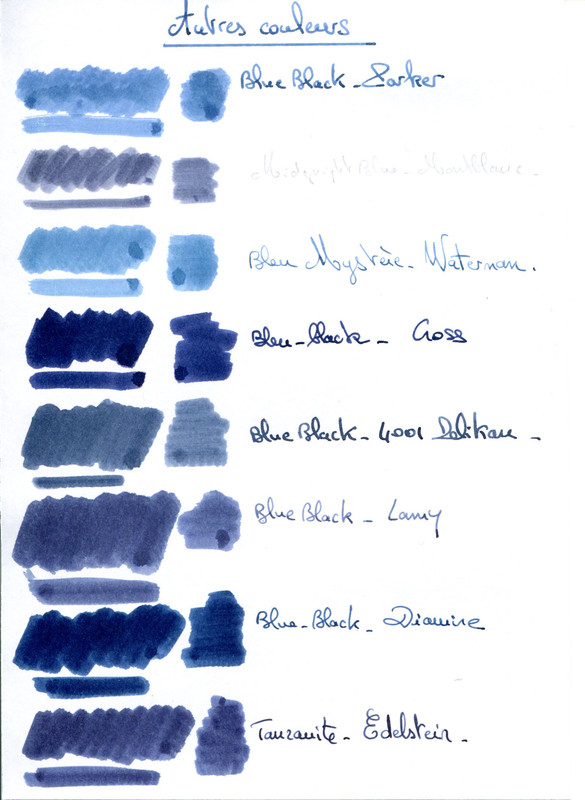 Autres couleurs
Blue Black - Parker
Midnight Blue - Montblanc -
Bleu Mystère - Waterman.
Bleu-black - Cross
Blue Black - 4001 Pelikan -
Blue Black - Lamy
Blue-Black - Diamine
Tanzanite - Edelstein -